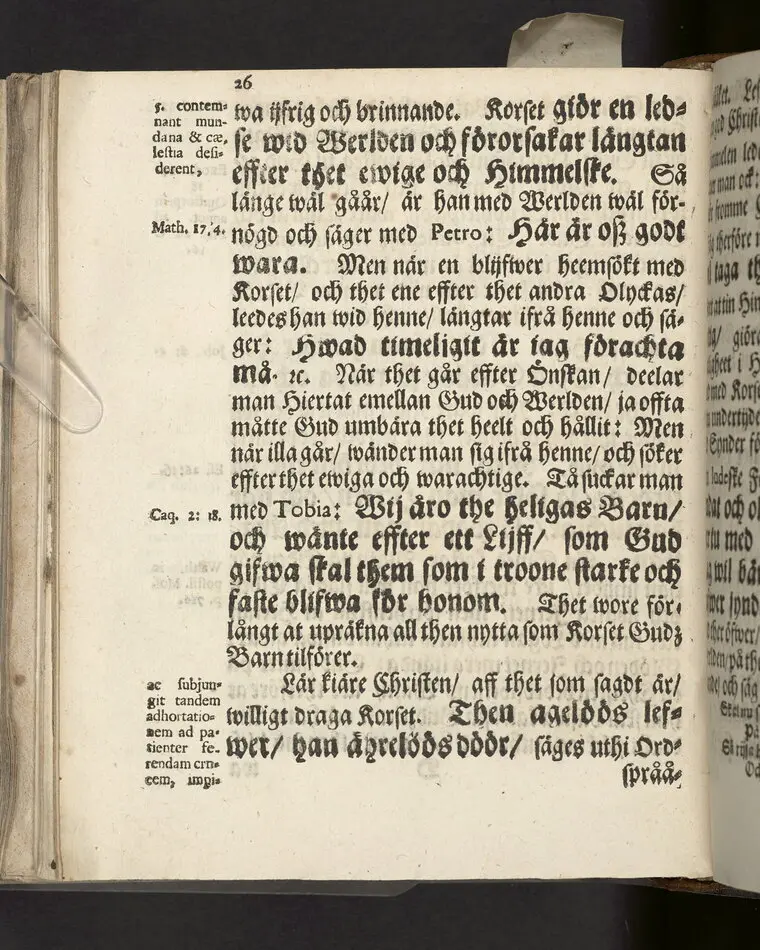 26
wa ijfrig och brinnande. Korset giör en led-
se wid Werlden och förorsakar längtan
effter thet ewige och Himmelske. Så
länge wäl gåår/ är han med Werlden wäl för-
nögd och säger med Petro: Här är oß godt
wara. Men när en blijfwer heemsökt med
Korset/ och thet ene effter thet andra Olyckas/
leedes han wid henne/ längtar ifrå henne och sä-
ger: Hwad timeligit är iag förachta
må. ꝛc. När thet går effter Önskan/ deelar
man Hiertat emellan Gud och Werlden/ ja offta
måtte Gud umbära thet heelt och hållit: Men
när illa går/ wänder man sig ifrå henne/ och söker
effter thet ewiga och warachtige. Tå suckar man
med Tobia: Wij äro the heligas Barn/
och wänte effter ett Lijff/ som Gud
gifwa skal them som i troone starke och
faste blifwa för honom. Thet wore för-
långt at upräkna all then nytta som Korset Gudz
Barn tilförer.
Lär kiäre Christen/ aff thet som sagdt är/
willigt draga Korset. Then agelöös lef-
wer/ han ährelöös döör/ säges uthi Ord-
språå-
5. contem-
nant mun-
dana & cæ-
lestia desi-
derent,
Math. 17, 4.
Cap. 2: 18.
ac subjun-
git tandem
adhortatio-
nem ad pa-
tienter fe-
rendam cru-
cem, impi-